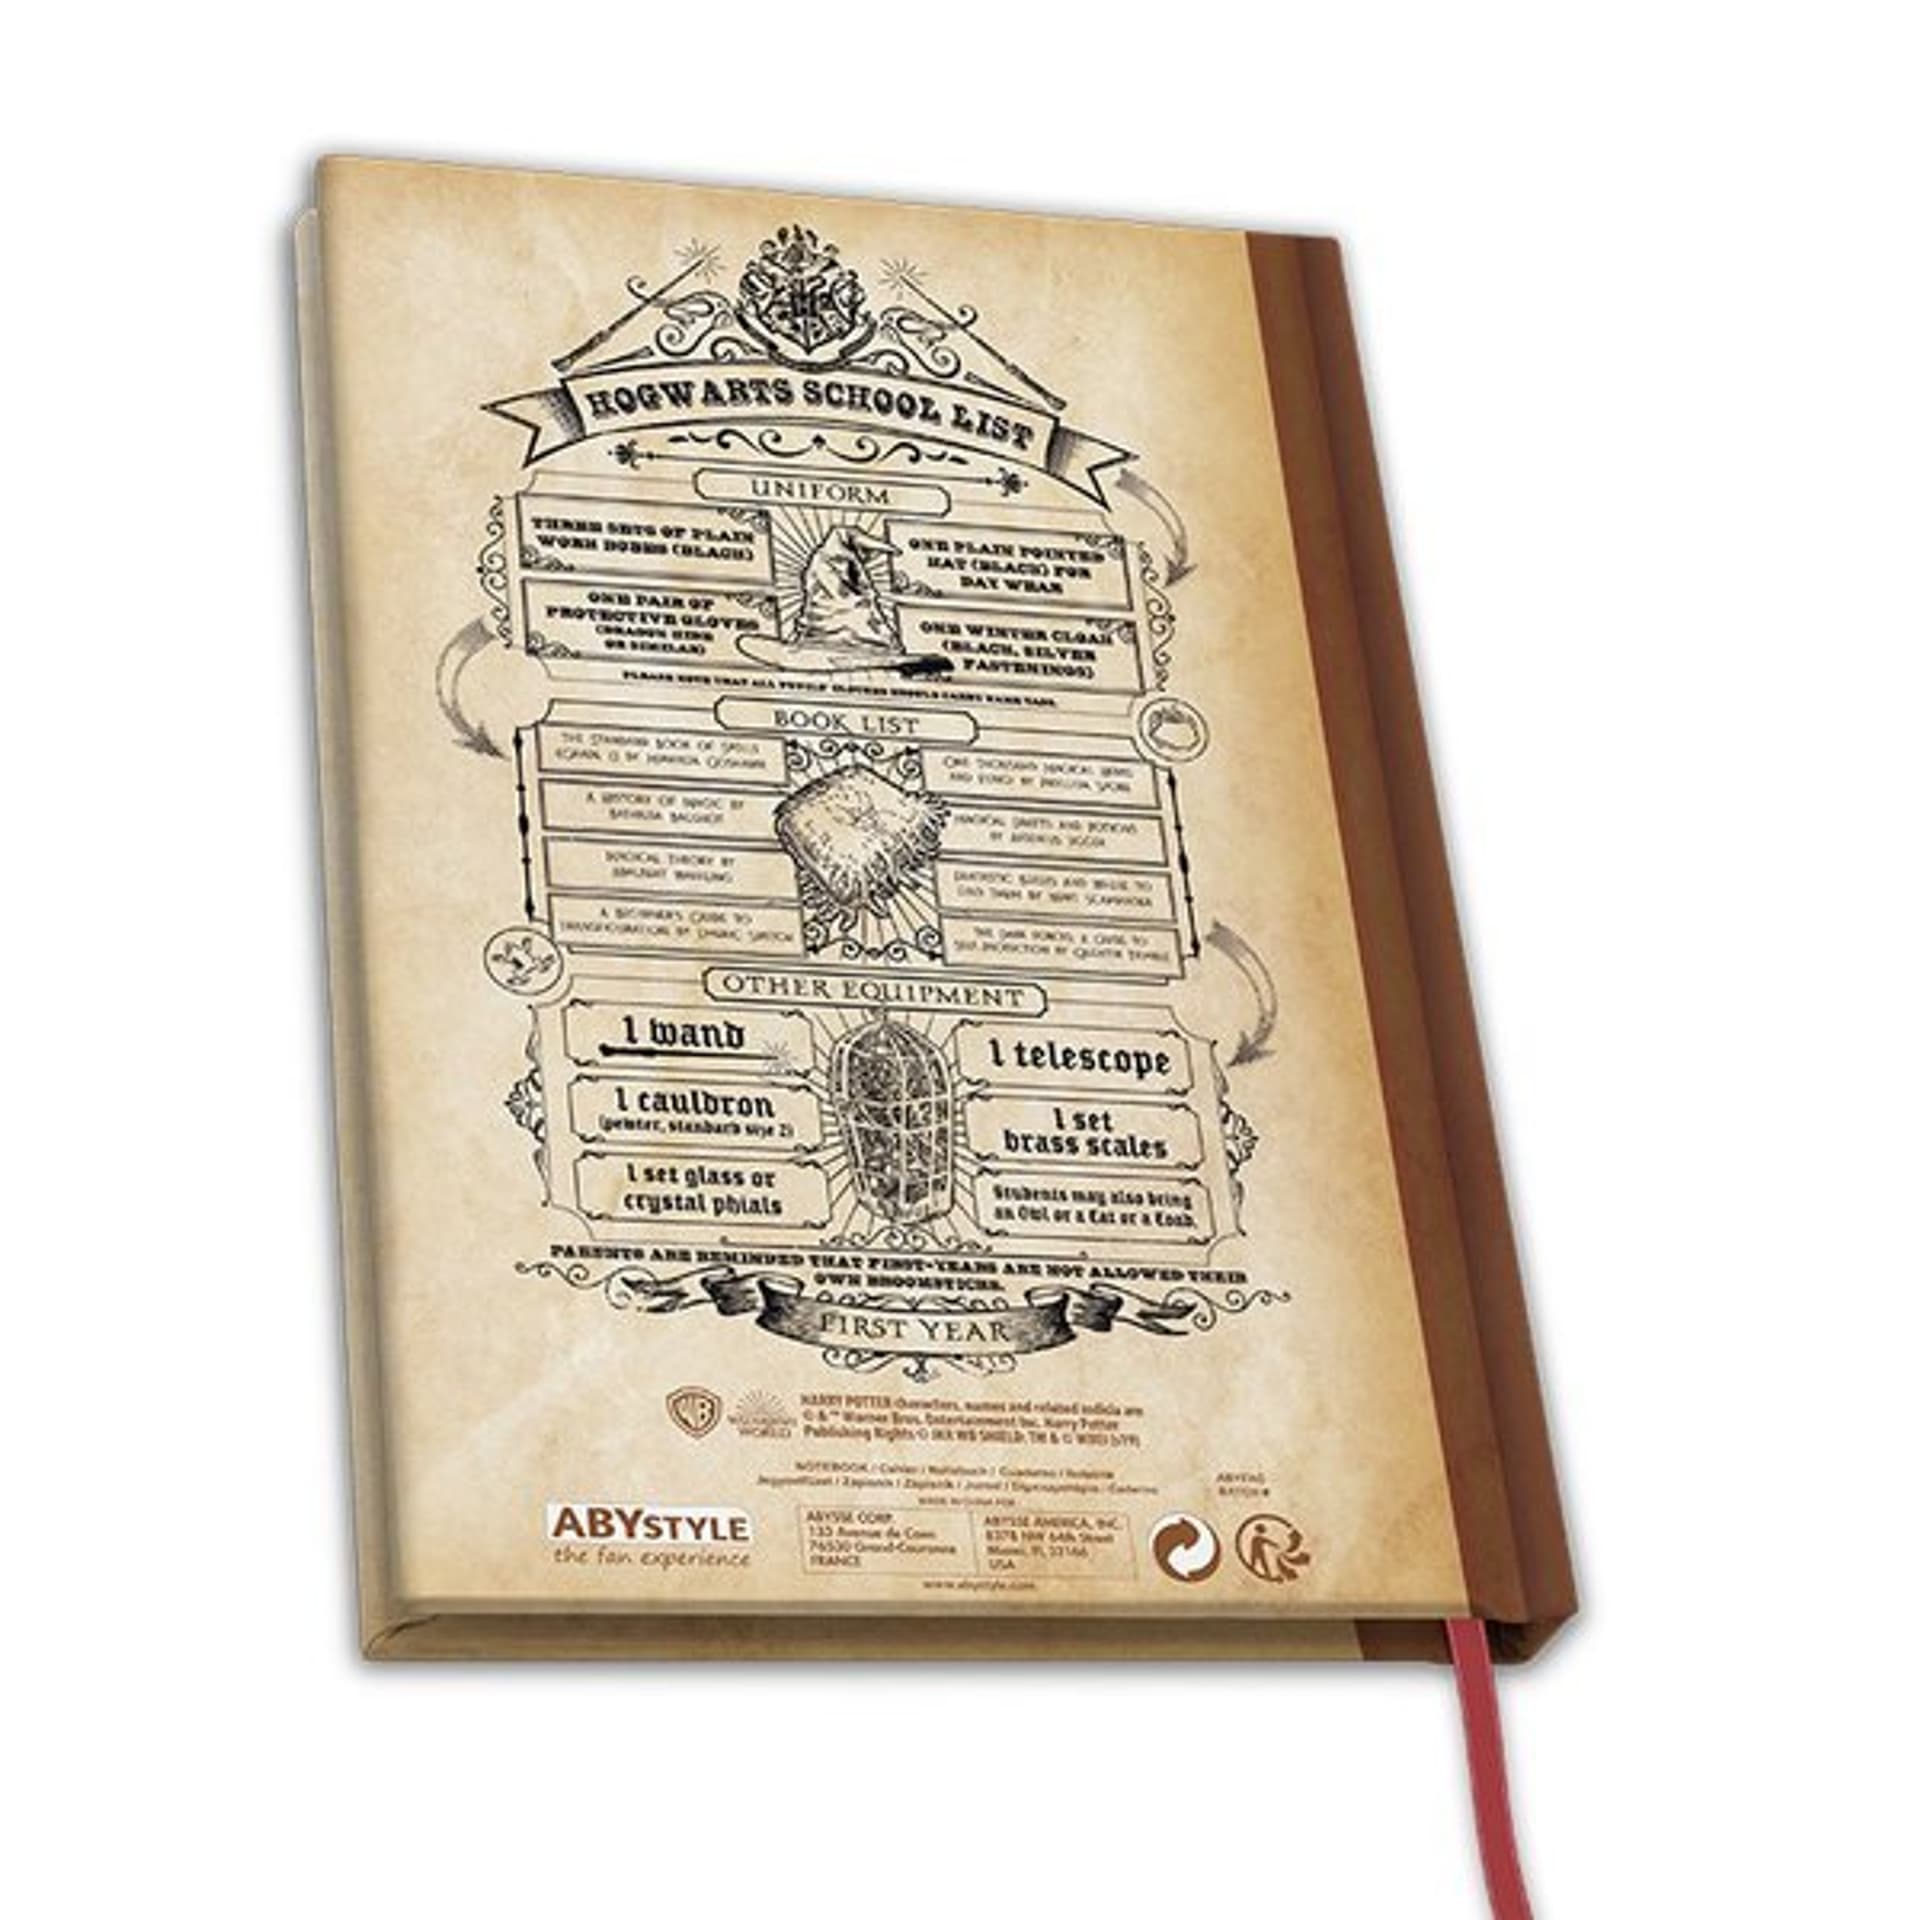 HOGWARTS SCHOOL LIST
UNIFORM
THREE SETS OF PLAIN
WORK ROBES (BLACK)
ONE PLAIN POINTED
HAT (BLACK) FOR
DAY WEAR
ONE PAIR OF
PROTECTIVE GLOVES
(DRAGON HIDE
OR SIMILAR)
ONE WINTER CLOAK
(BLACK, SILVER
FASTENINGS)
PLEASE NOTE THAT ALL PUPILS' CLOTHES SHOULD CARRY NAME TAGS.
BOOK LIST
THE STANDARD BOOK OF SPELLS
BY MIRANDA GOSHAWK
A HISTORY OF MAGIC BY
BATHILDA BAGSHOT
MAGICAL THEORY BY
ADALBERT WAFFLING
A BEGINNER'S GUIDE TO
TRANSFIGURATION BY EMERIC SWITCH
ONE THOUSAND MAGICAL HERBS
AND FUNGI BY PHYLLIDA SPORE
MAGICAL DRAFTS AND POTIONS
BY ARSENIUS JIGGER
FANTASTIC BEASTS AND WHERE TO
FIND THEM BY NEWT SCAMANDER
THE DARK FORCES: A GUIDE TO
SELF-PROTECTION BY QUENTIN TRIMBLE
OTHER EQUIPMENT
1 wand
1 cauldron
(pewter, standard size 2)
1 set glass or
crystal phials
1 telescope
1 set
brass scales
Students may also bring
an Owl or a Cat or a Toad.
PARENTS ARE REMINDED THAT FIRST-YEARS ARE NOT ALLOWED THEIR
OWN BROOMSTICKS.
FIRST YEAR
WB
WIZARDING
WORLD
HARRY POTTER characters, names and related indicia are
© & ™ Warner Bros. Entertainment Inc. Harry Potter
Publishing Rights © JKR WB SHIELD: TM & © WBEI
NOTEBOOK / Cahier / Notizbuch / Cuaderno
MADE IN CHINA FOR
ABYSTYLE
the fan experience
ABYSSE CORP.
133 Avenue de Caen
76530 Grand-Couronne
FRANCE
ABYSSE AMERICA, INC.
8378 NW 64th Street
Miami, FL 33166
USA
www.abystyle.com
BATCH #